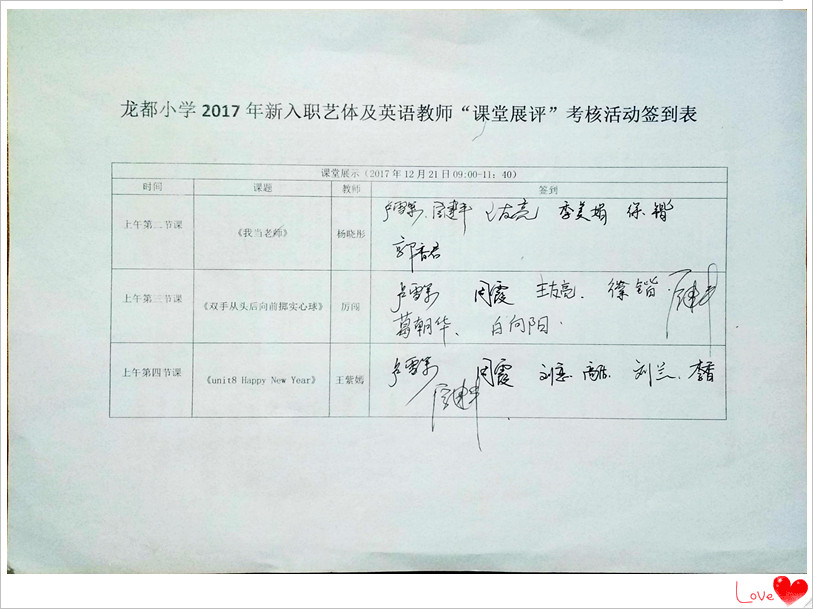 龙都小学 2017 年新入职艺体及英语教师“课堂展评”考核活动签到表
课堂展示（2017 年 12 月 21 日 09:00-11：40）
时间 课题 教师 签到
上午第二节课 《我当老师》 杨晓彤 王友亮 李美娟 徐锴
郭香君
上午第三节课 《双手从头后向前掷实心球》 厉闯 闫霞 王友亮. 徐锴.
葛朝华、 白向阳.
上午第四节课 《unit8 Happy New Year》 王紫嫣 闫霞 刘兰.
Love